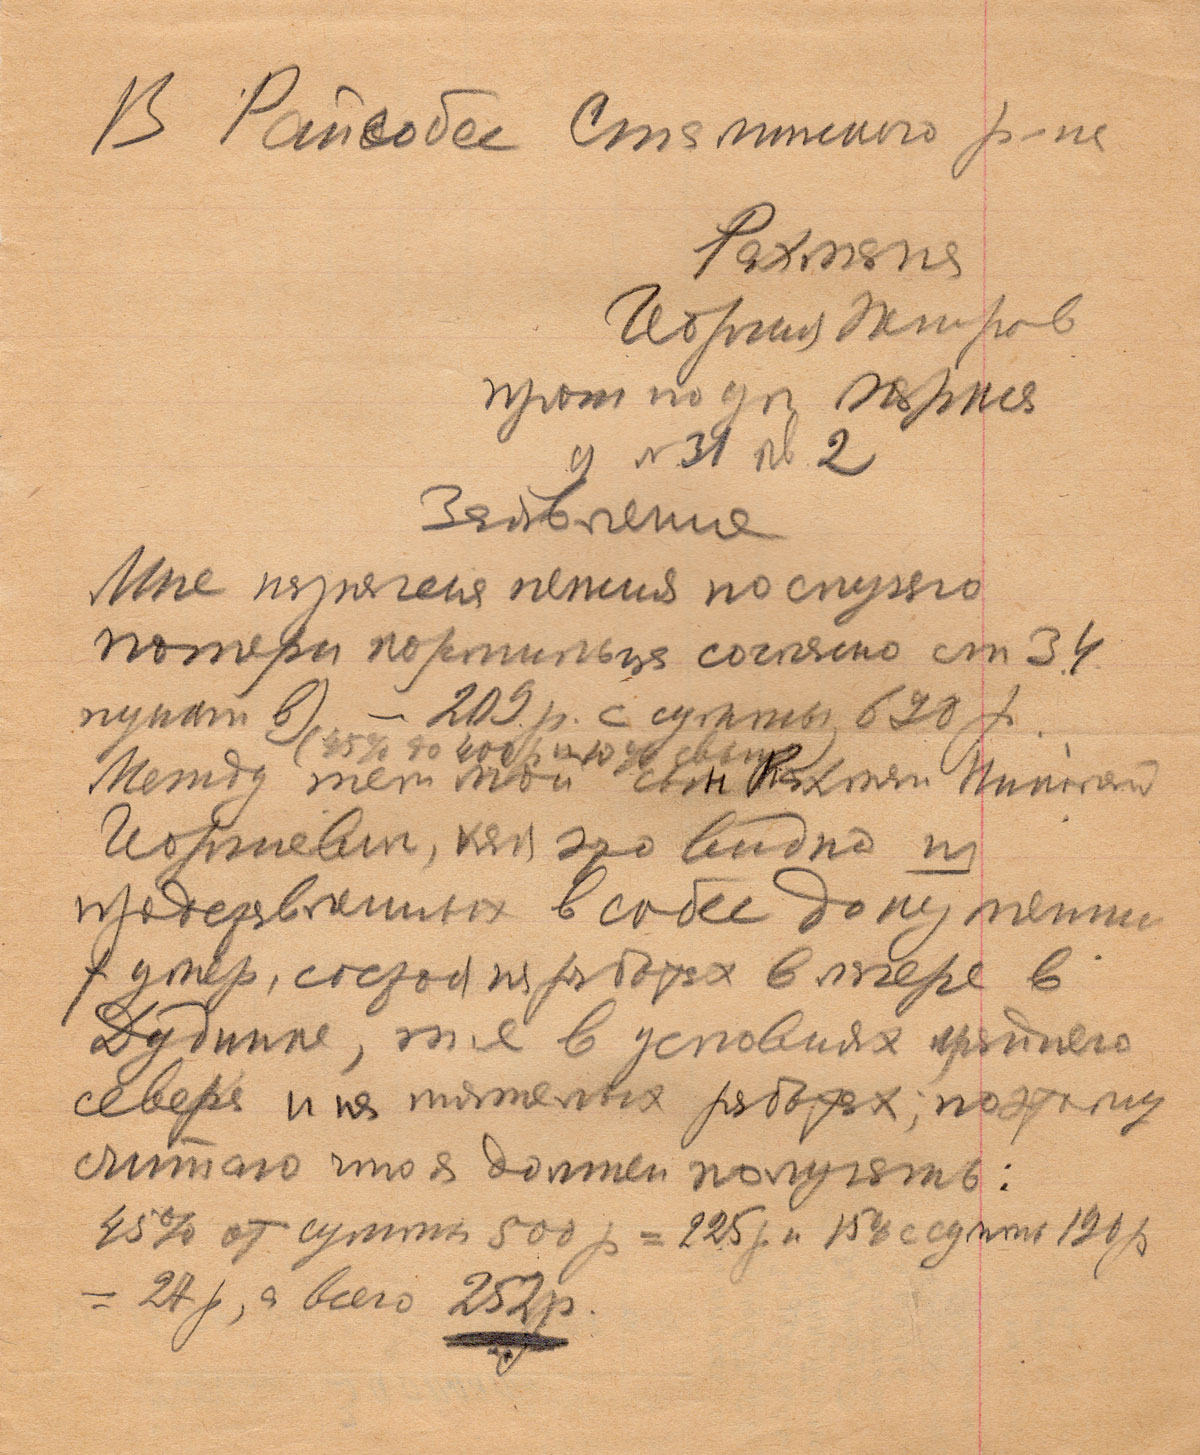 В Райсобес Сталинского р-на
Рахмана
прож по ул Маркса
д № 31 кв 2
Заявление
Мне назначена пенсия по случаю
потери кормильца согласно ст 34
пункт в) – 209 р. с суммы 690 р.
(45% до 400 р и 10% свыше)
Между тем мой сын Рахман Николай
как это видно из
в собес документов
умер, состоя на работах в лагере в
Дудинке, т.е в условиях крайнего
севера и на тяжелых работах; поэтому
считаю что я должен получать:
45% от суммы 500 р = 225 р и 15% с суммы 190 р
= 27 р, а всего 252 р.